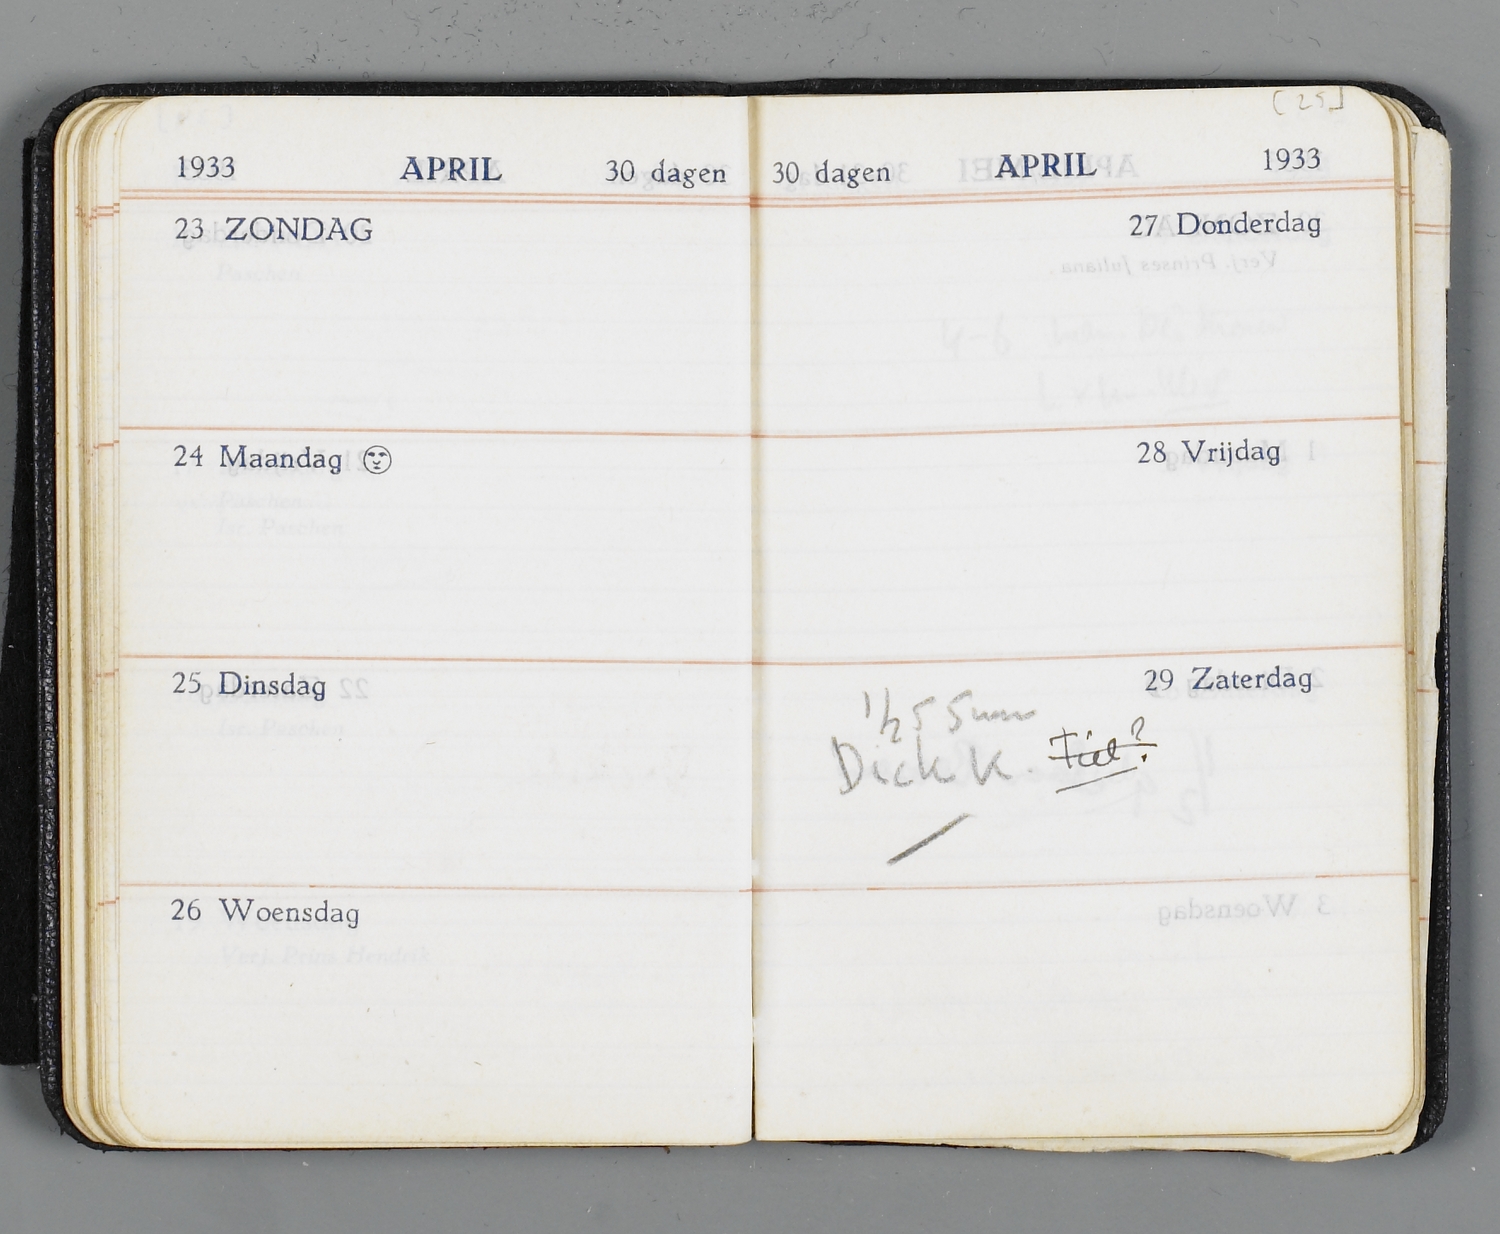 [25]
1933 APRIL 30 dagen
23 ZONDAG
24 Maandag
25 Dinsdag
26 Woensdag
30 dagen APRIL 1933
27 Donderdag
28 Vrijdag
29 Zaterdag
1/2 5
Dick K. Fiet?